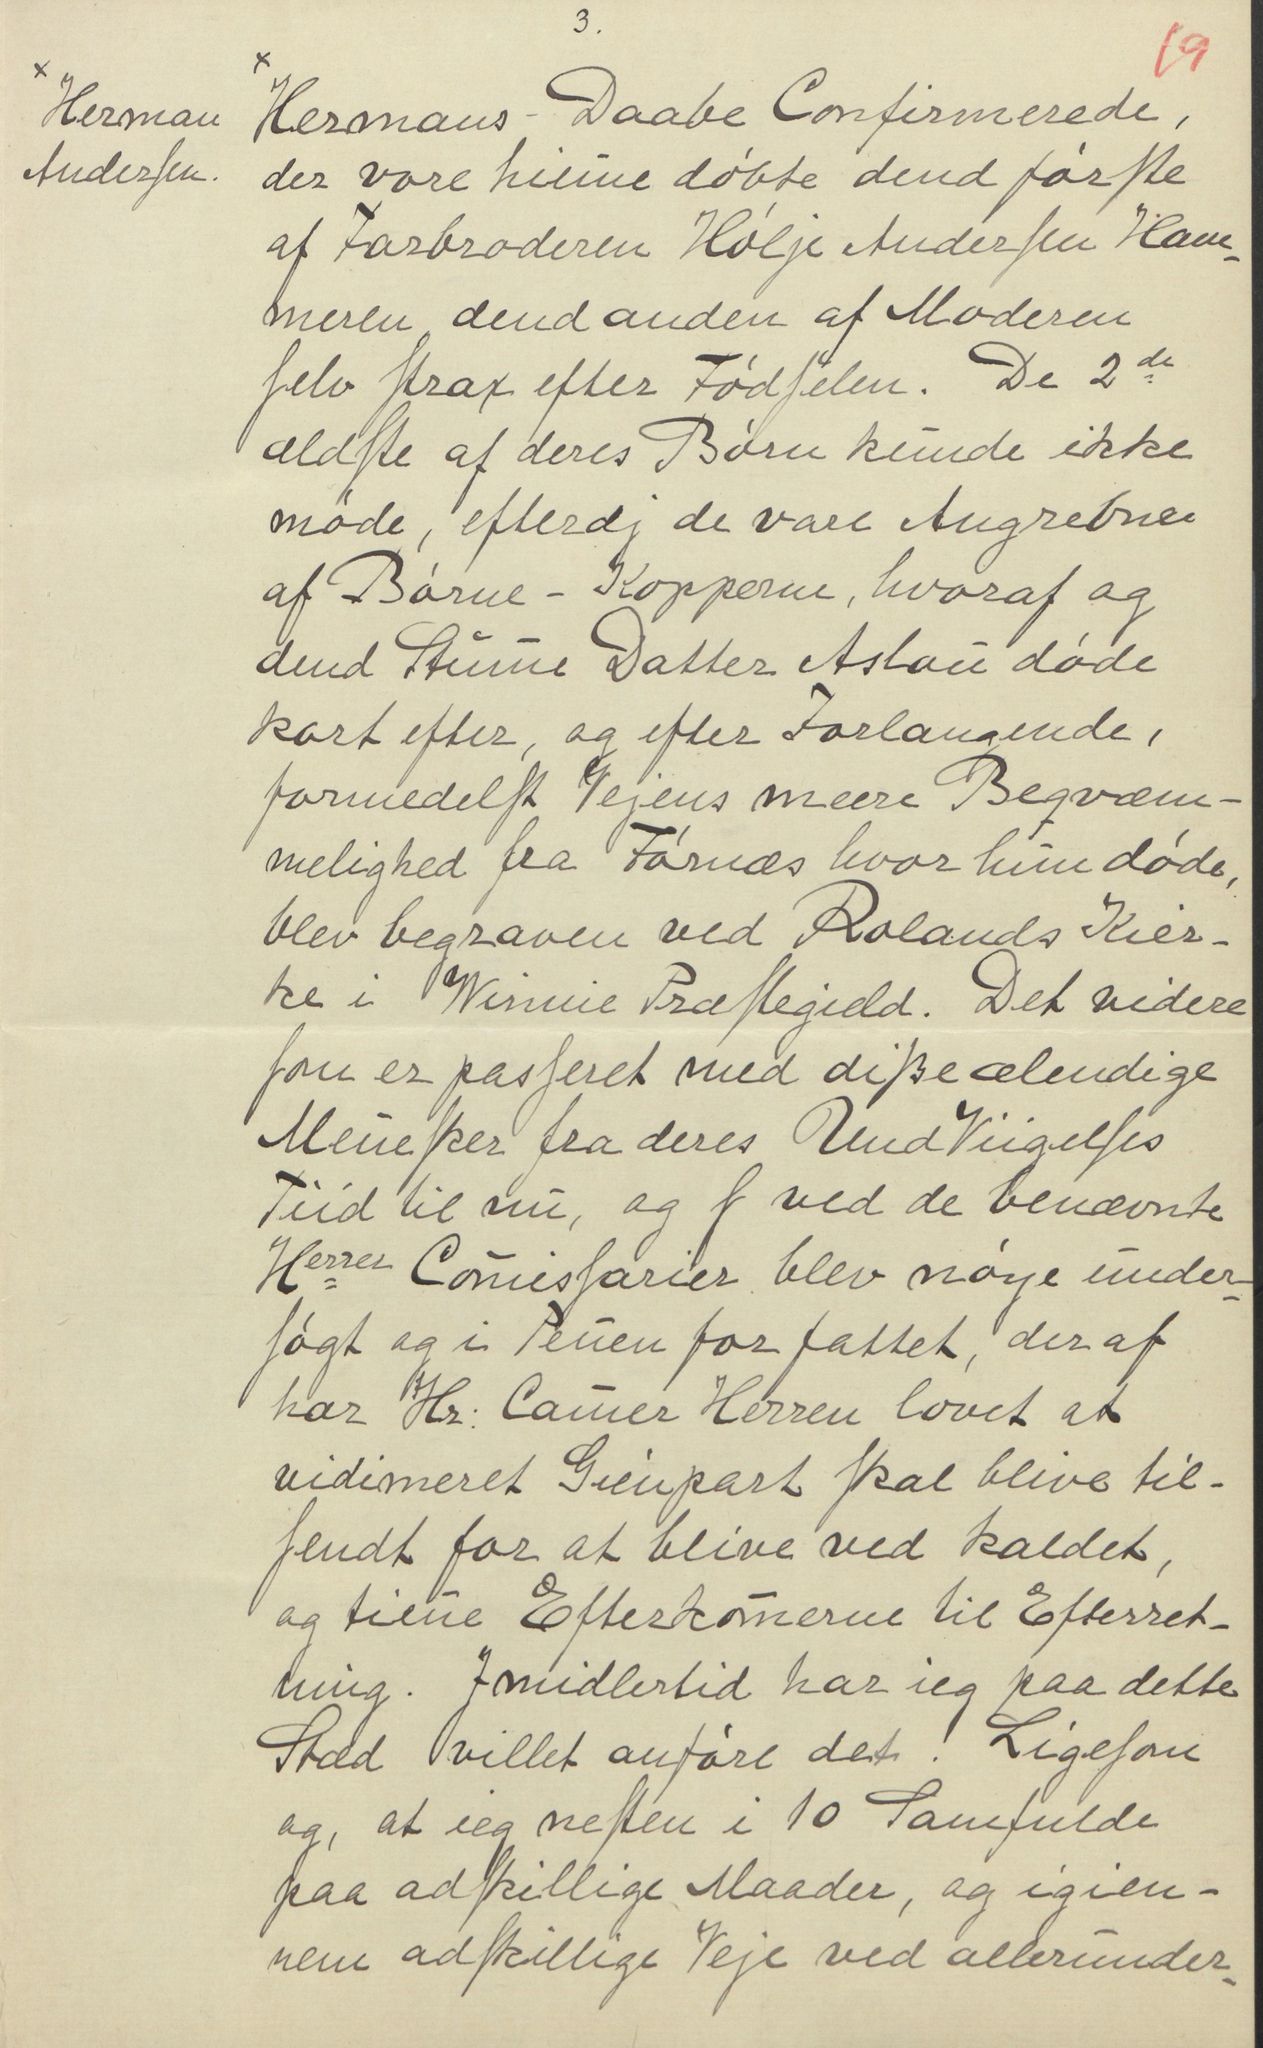 3.
69
x
Herman
Anderſen.
x
Hermans - Daabe Confirmerede,
der vare hieme̅ döbte dend förſte
af Farbroderen Hölje Anderſen Ham-
meren, dend anden af Moderen
ſelv ſtrax efter Födſelen. De 2de
ældſte af deres Börn kunde ikke
möde, efterdj de vare Angrebne
af Börne-Kopperne, hvoraf og
dend Stum̅e Datter Aslou̅ döde
kort efter, og efter Forlangende,
formedelſt Vejens meere Beqvæm-
melighed fra Förnæs hvor hun döde,
blev begraven ved Rolands Kier-
ke i Winnie Præſtegield. Det videre
ſom er pasſeret med diße ælendige
Men̅eſker fra deres UndViigelſes
Tiid til nu, og ſ ved de benævnte
Herrer Com̅isſarier blev nöye under-
ſögt og i Pen̅en forfattet, deraf
har Hr: Cam̅er Herren lovet at
vidimeret Gienpart ſkal blive til-
ſendt for at blive ved kaldet,
og tien̅e Efterkom̅erne til Efterret-
ning. Imidlertid har ieg paa dette
Stæd villet anföre det. Ligeſom
og, at ieg neſten i 10 Samfulde
paa adſkillige Maader, og igien-
nem adſkillige Veje ved allerunder-